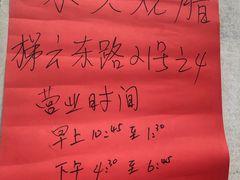 梯云东路21号之4
营业时间
早上 10:45 至 1:30
下午 4:30 至 6:45